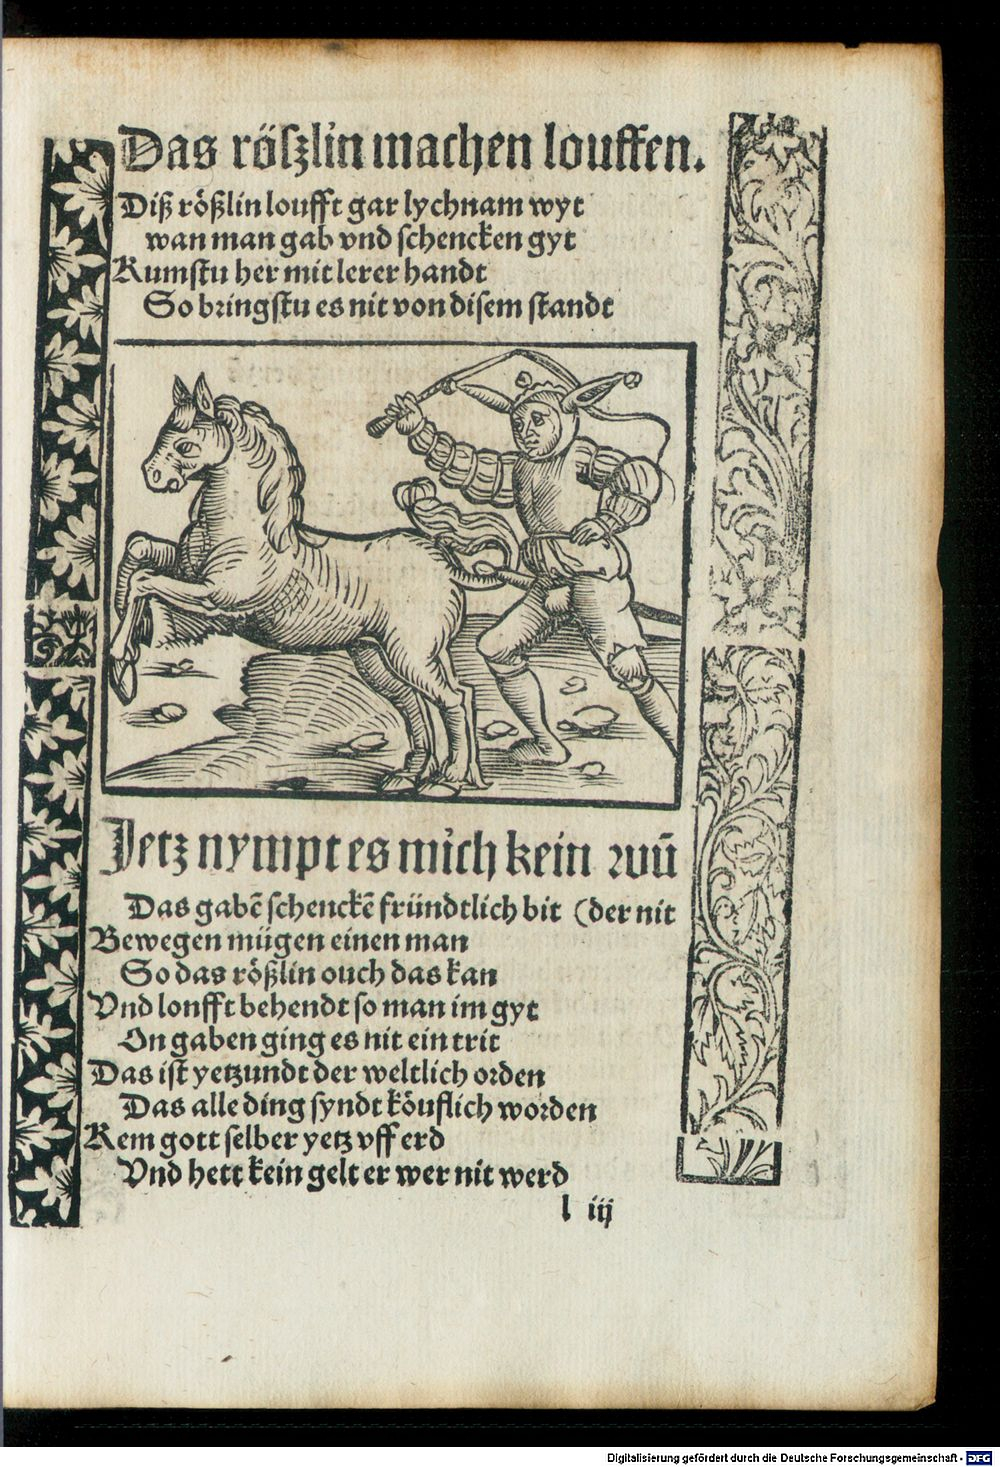 Das röſzlin machen louffen.
Diß rößlin loufft gar lychnam wyt
wan man gab vnd ſchencken gyt
Kumſtu her mit lerer handt
So bringſtu es nit von diſem ſtandt
Jetz nympt es mich kein wũ
Das gabẽ ſchenckẽ fründtlich bit (der nit
Bewegen mügen einen man
So das rößlin ouch das kan
Vnd lonfft behendt ſo man im gyt
On gaben ging es nit ein trit
Das iſt yetzundt der weltlich orden
Das alle ding ſyndt köuflich worden
Kem gott ſelber yetz vff erd
Vnd hett kein gelt er wer nit werd
l iij
Digitalisierung gefördert durch die Deutsche Forschungsgemeinschaft - DFG